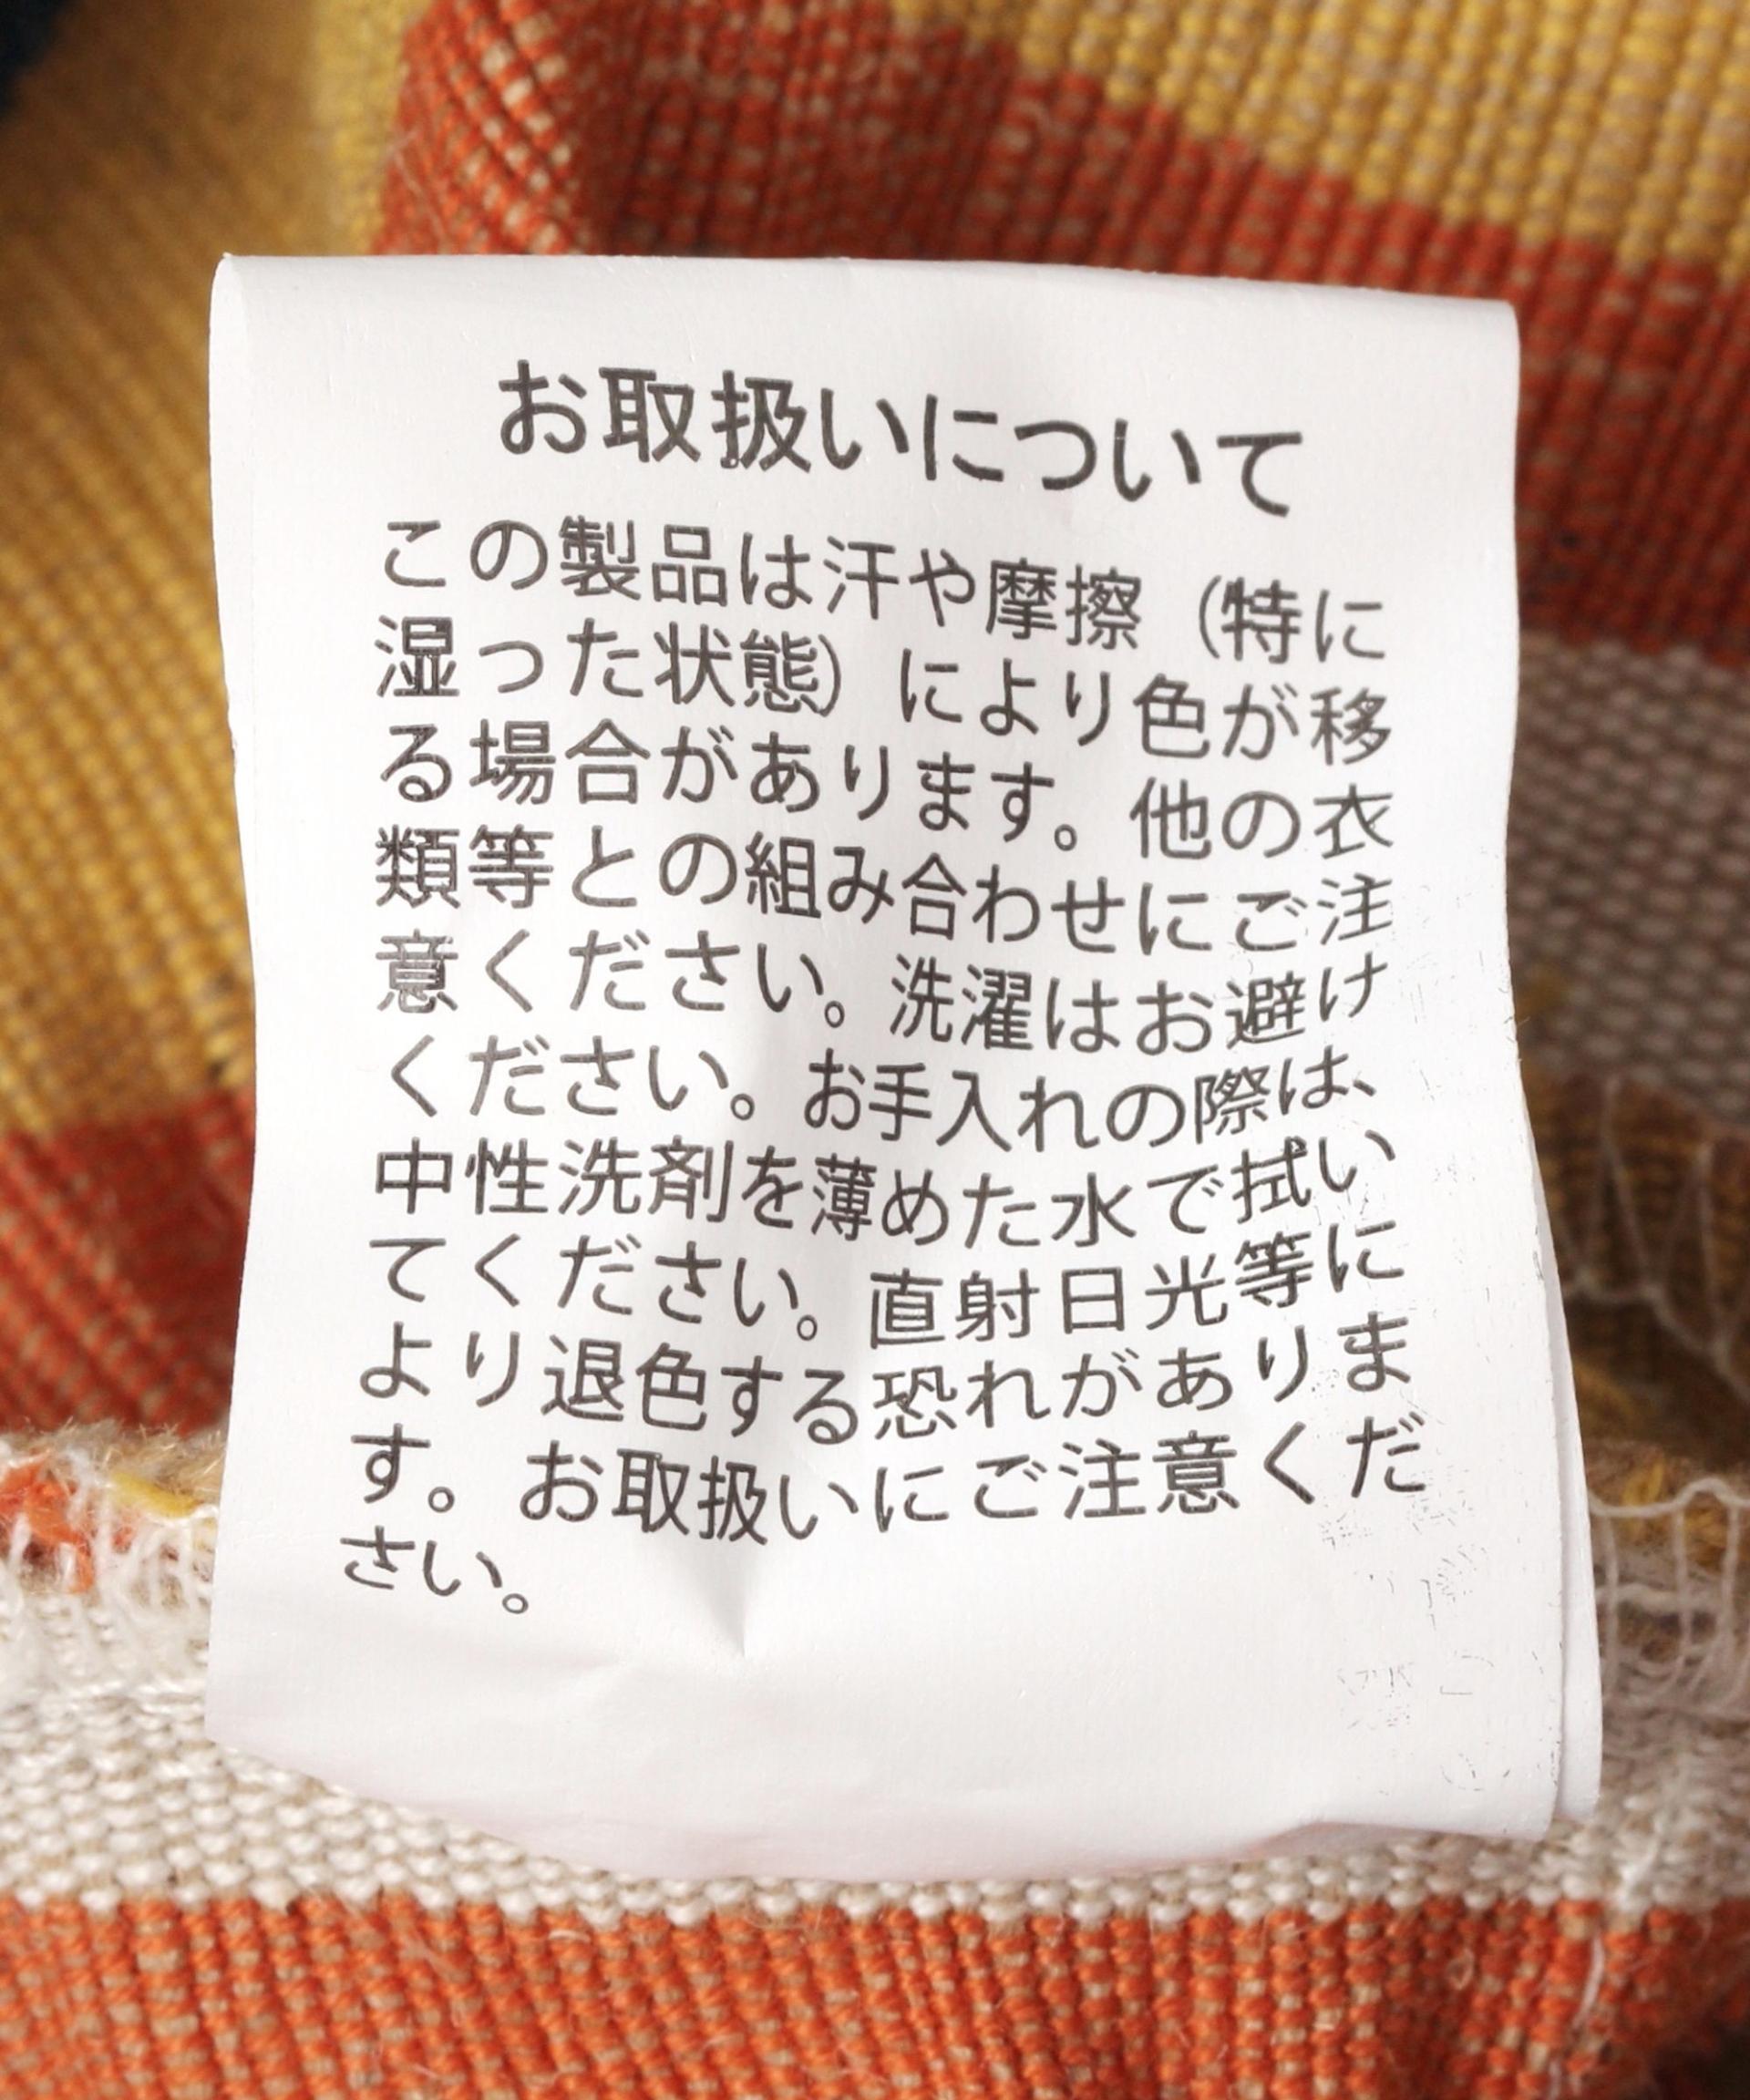 お取扱いについて
この製品は汗や摩擦（特に
湿った状態）により色が移
る場合があります。他の衣
類等との組み合わせにご注
意ください。洗濯はお避け
ください。お手入れの際は、
中性洗剤を薄めた水で拭い
てください。直射日光等に
より退色する恐れがありま
す。お取扱いにご注意くだ
さい。